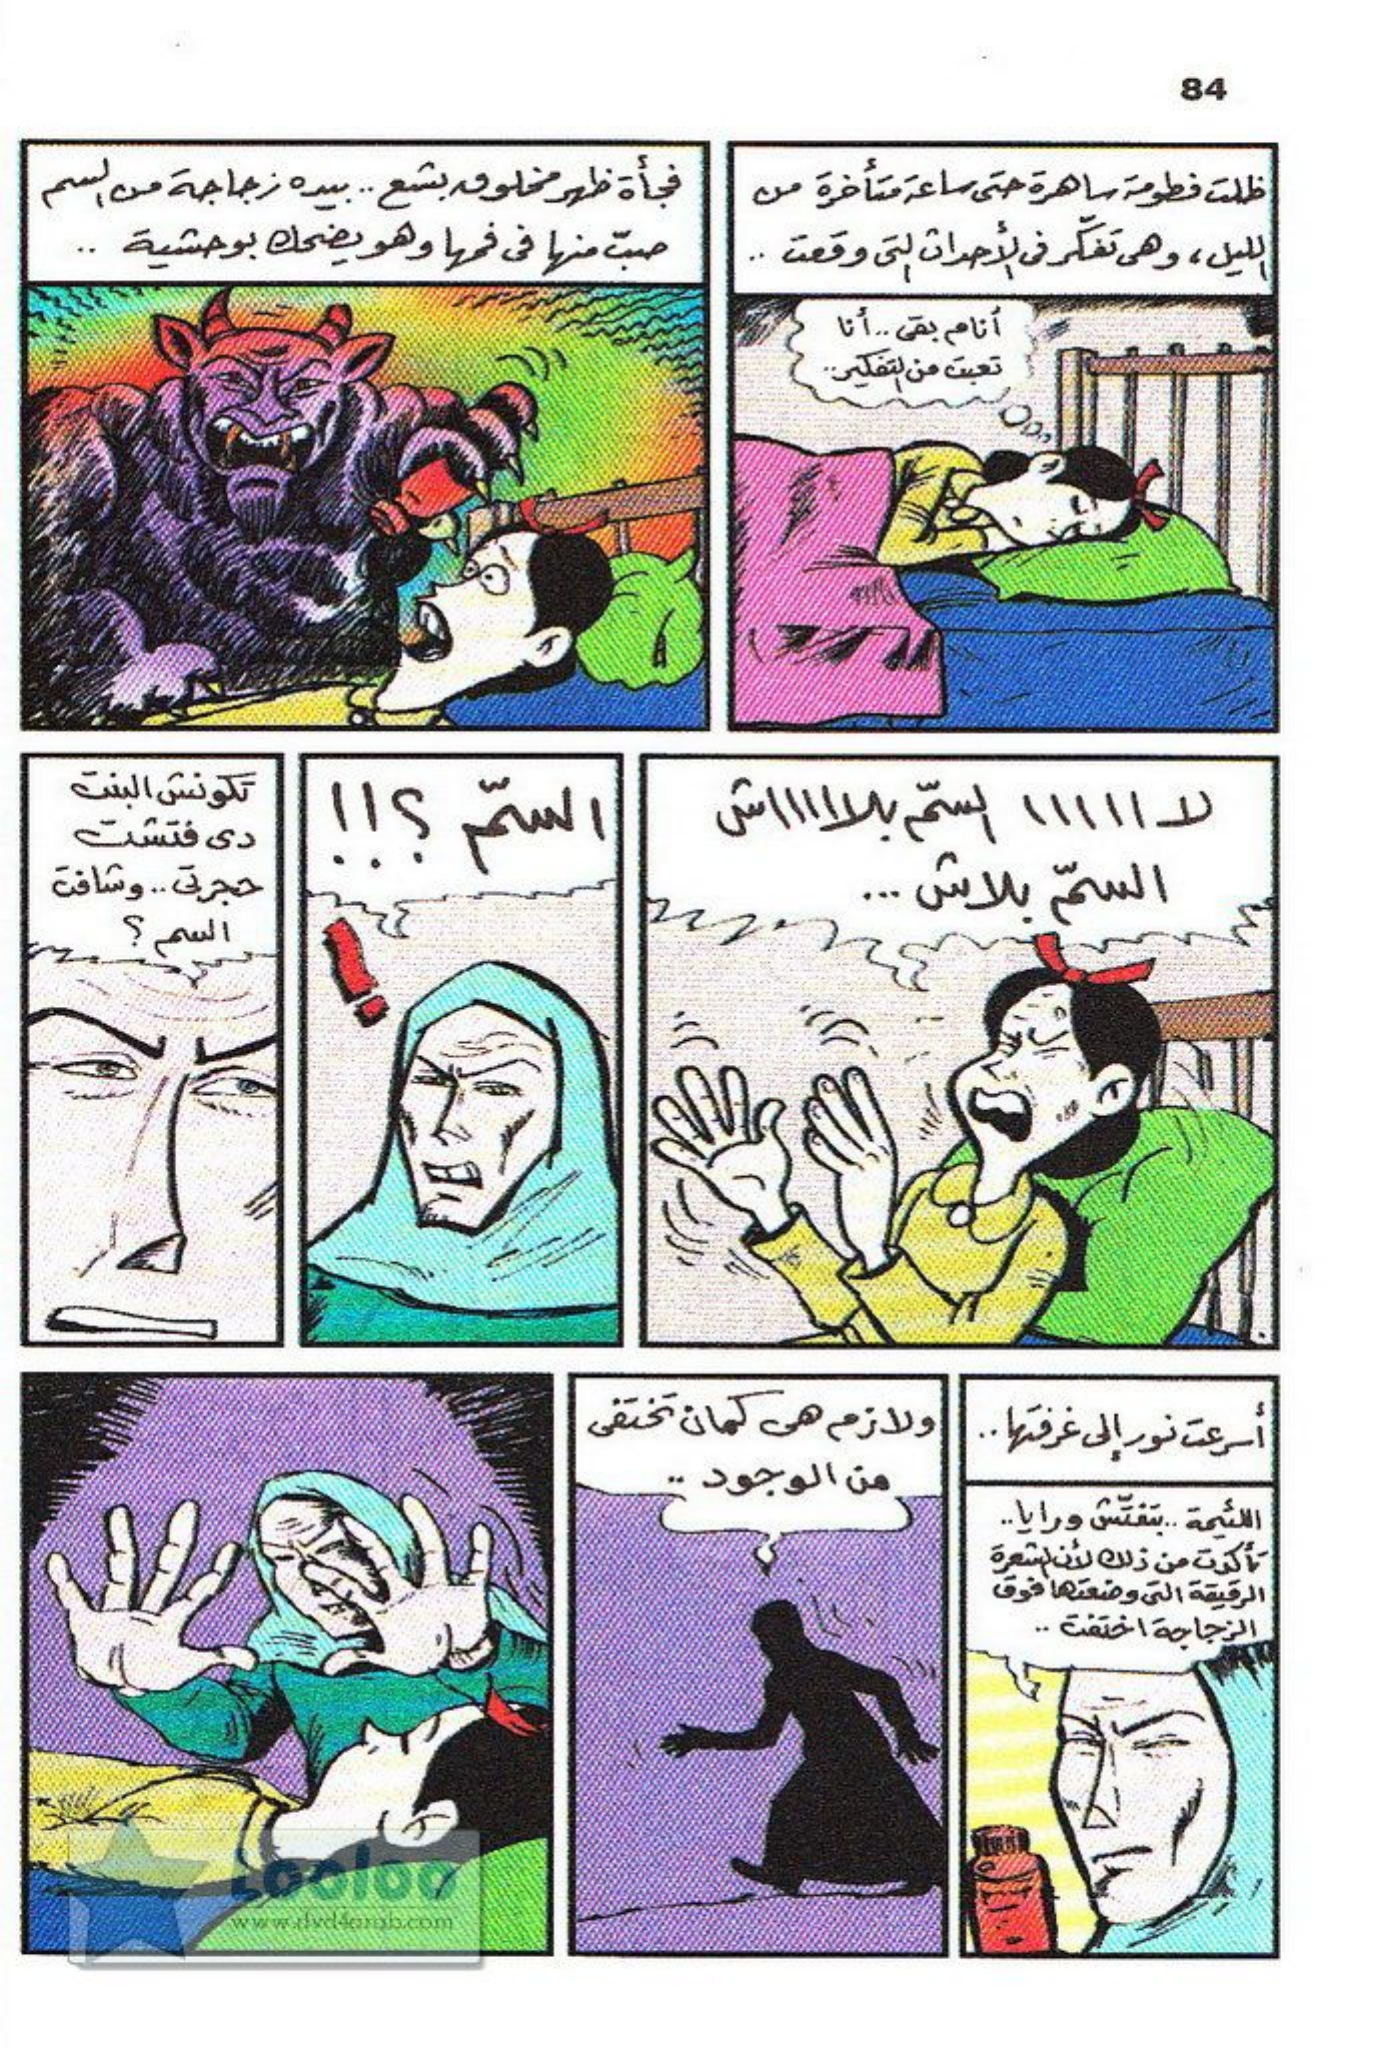 84
ظلت فطومة ساهرة حتى ساعة متأخرة من
الليل، وهى تفكّر فى الأحداث التى وقعت ..
أنام بقى .. أنا
تعبت من التفكير..
فجأة ظهر مخلوق بشع .. بيده زجاجة من السم
صبّ منها فى فمها وهو يضحك بوحشية ..
لا ١١١١١ السمّ بلاااااش
السمّ بلاش ...
السمّ ؟!!
!
تكونش البنت
دى فتشت
حجرتى .. وشافت
السم ؟
أسرعت نور إلى غرفتها ..
اللئيمة .. بتفتّش ورايا ..
تأكدت من ذلك لأن الشعرة
الرقيقة التى وضعتها فوق
الزجاجة اختفت ..
ولازم هى كمان تختفى
من الوجود ..
Looloo
www.dvd4arab.com